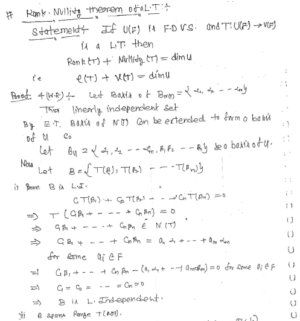 # Rank-Nullity theorem of L.T :-
Statement :- If U(F) is F.D.V.S. and T: U(F) → V(F)
is a L.T. then
Rank(T) + Nullity(T) = dim U
i.e. ρ(T) + ν(T) = dim U
Proof :- Let Basis of
This linearly independent set
By E.T. Basis of N(T) can be extended to form a basis
of U
Let be a basis of U.
Now Let B = {T(β₁), T(β₂) - - - T(βₙ)}
i) B is L.I.
C₁T(β₁) + C₂T(β₂) - - - CₙT(βₙ) = 0
⇒ T(C₁β₁ + - - - + Cₙβₙ) = 0
⇒ C₁β₁ + - - - + Cₙβₙ ∈ N(T)
⇒ C₁β₁ + - - + Cₙβₙ = a₁α₁ + - - + aₘαₘ
for some aᵢ ∈ F
⇒ C₁β₁ + - - + Cₙβₙ - (a₁α₁ + - - + aₘαₘ) = 0 for some aᵢ ∈ F
⇒ C₁ = C₂ = - - = Cₙ = 0
⇒ B is L. Independent.
ii) B spans Range